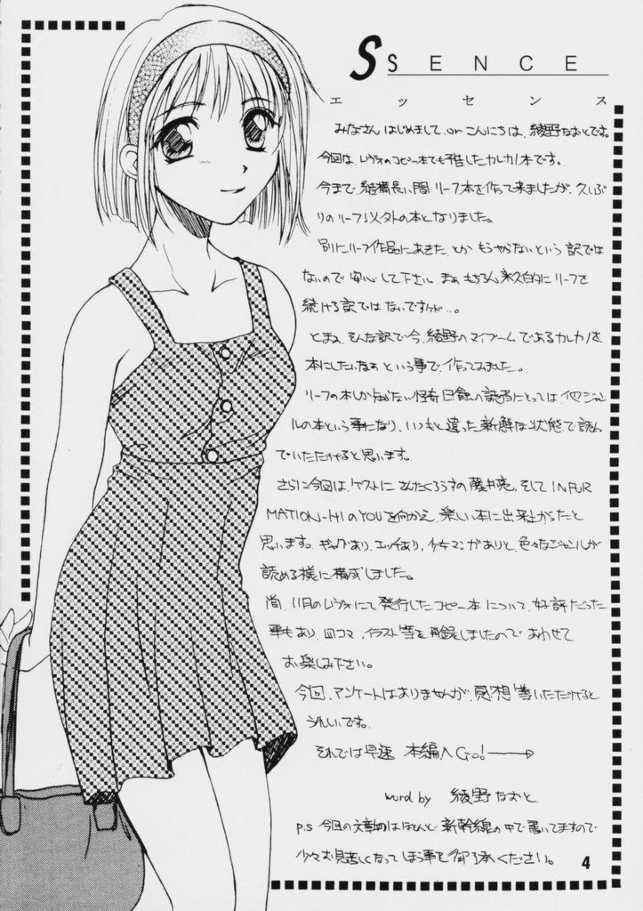 SSENCE
エッセンス
みなさんはじめまして or こんにちは、綾野なおとです。
今回は、レヴォのコピー本でも予告したカレカノ本です。
今まで、結構長い間リーフ本を作って来ましたが、久しぶ
りのリーフ以外の本となりました。
別にリーフ作品にあきたとかもうやらないという訳では
ないので安心して下さい。まぁもちろん永久的にリーフを
続ける訳ではないですが…。
とまぁ、そんな訳で今、綾野のマイブームであるカレカノを
本にしたいなぁという事で、作ってみました。
リーフの本しか 怪奇日録の読者にとっては他ジャン
ルの本という事になり、いつもと違った新鮮な状態で読ん
でいただけると思います。
さらに今回は、ゲストに の藤井亮、そしてINFOR
MATION-HIのYOUを向かえ、楽しい本に出来上がったと
思います。ギャグあり、エッチあり、少女マンガありと、色々なジャンルが
読める様に構成しました。
尚、11月のレヴォにて発行したコピー本について、好評だった
事もあり、四コマ、イラスト等を再録しましたのであわせて
お楽しみ下さい。
今回、アンケートはありませんが、感想等いただけると
うれしいです。
それでは早速 本編へGo!
word by 綾野なおと
p.s 今回の文章 はほとんど新幹線の中で書いてますので
少々お見苦しくなってしまう事を御了承ください。
4